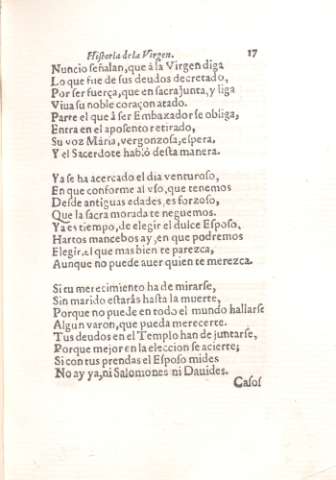 Historia de la Virgen. 17
Nuncio señalan, que à la Virgen diga
Lo que fue de sus deudos decretado,
Por ser fuerça, que en sacra junta, y liga
Viua su noble coraçon atado.
Parte el que à ser Embaxador se obliga,
Entra en el aposento retirado,
Su voz Maria, vergonzosa, espera,
Y el Sacerdote habló desta manera.
Ya se ha acercado el dia venturoso,
En que conforme al vso, que tenemos
Desde antiguas edades, es forzoso,
Que la sacra morada te neguemos.
Ya es tiempo, de elegir el dulce Esposo,
Hartos mancebos ay, en que podremos
Elegir, el que mas bien te parezca,
Aunque no puede auer quien te merezca.
Si tu merecimiento ha de mirarse,
Sin marido estarás hasta la muerte,
Porque no puede en todo el mundo hallarse
Algun varon, que pueda merecerte.
Tus deudos en el Templo han de juntarse,
Porque mejor en la eleccion se acierte;
Si con tus prendas el Esposo mides
No ay ya, ni Salomones ni Dauides.
Casos